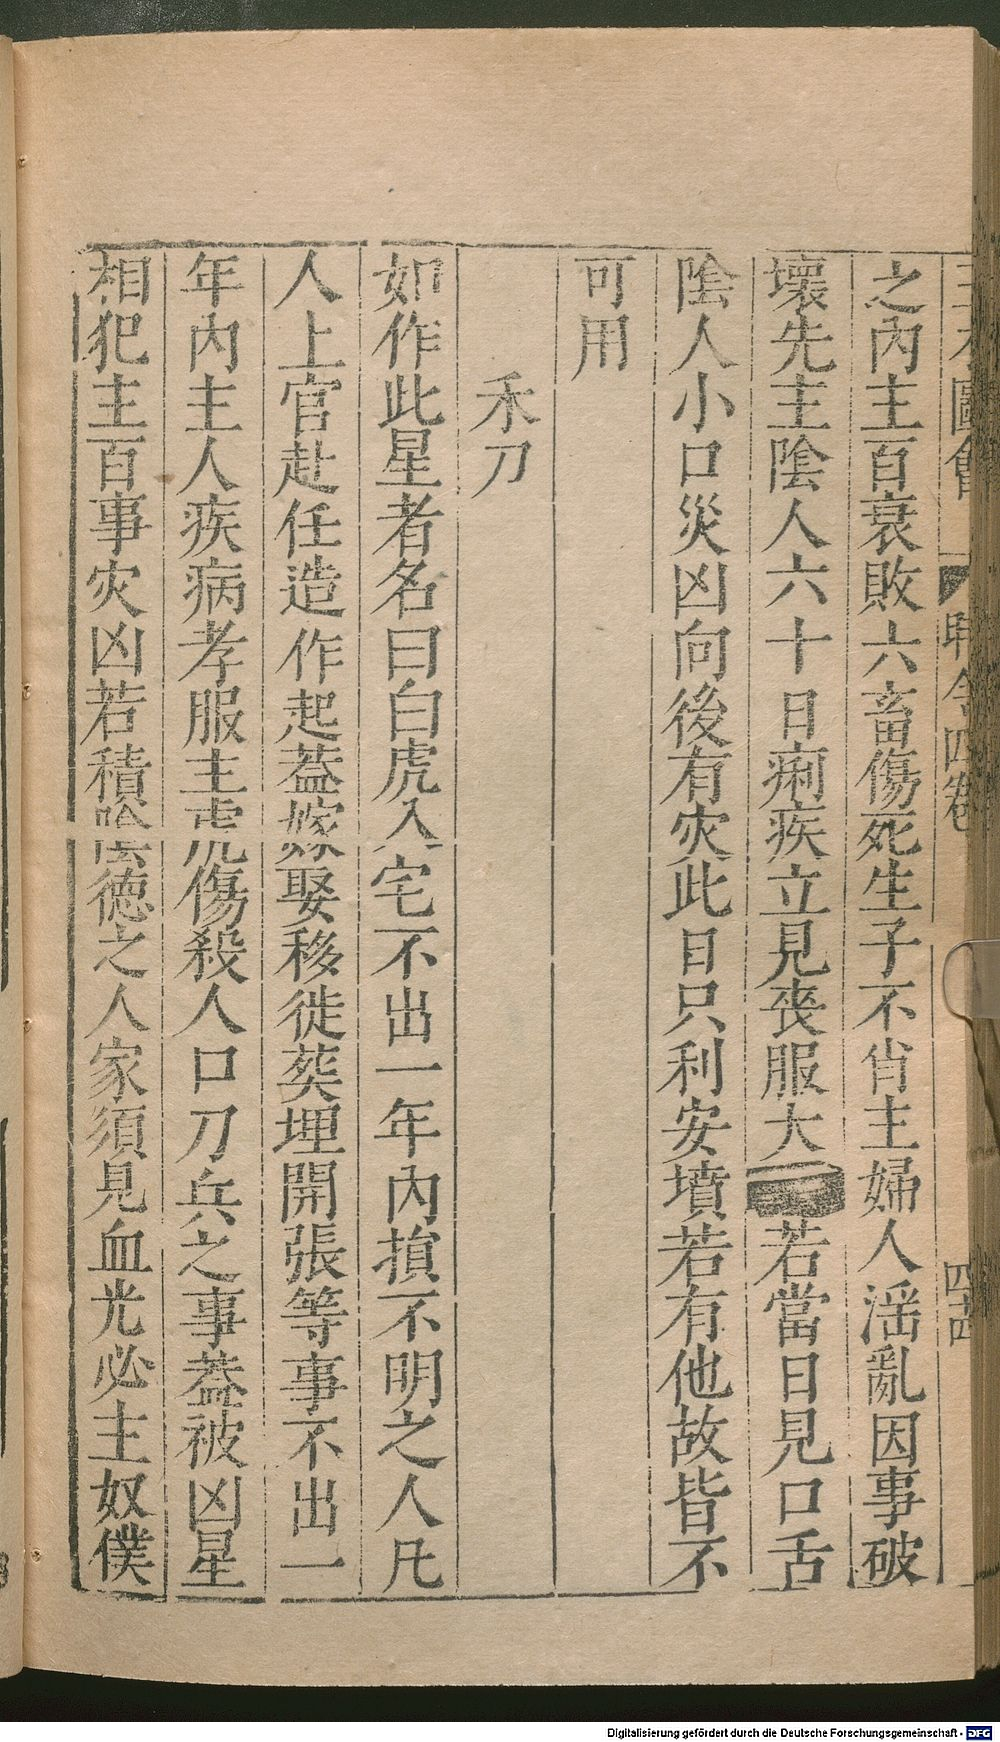 三才圖會 時令四卷 四十四
之內主百衰敗六畜傷死生子不肖主婦人淫亂因事破
壞先主陰人六十日痢疾立見丧服大若當日見口舌
陰人小口災凶向後有灾此日只利安墳若有他故皆不
可用
禾刀
如作此星者名曰白虎入宅不出一年內損不明之人凡
人上官赴任造作起葢嫁娶移徙葬埋開張等事不出一
年內主人疾病孝服主虎傷殺人口刀兵之事葢被凶星
相犯主百事灾凶若積陰德之人家須見血光必主奴僕
Digitalisierung gefördert durch die Deutsche Forschungsgemeinschaft - DFG